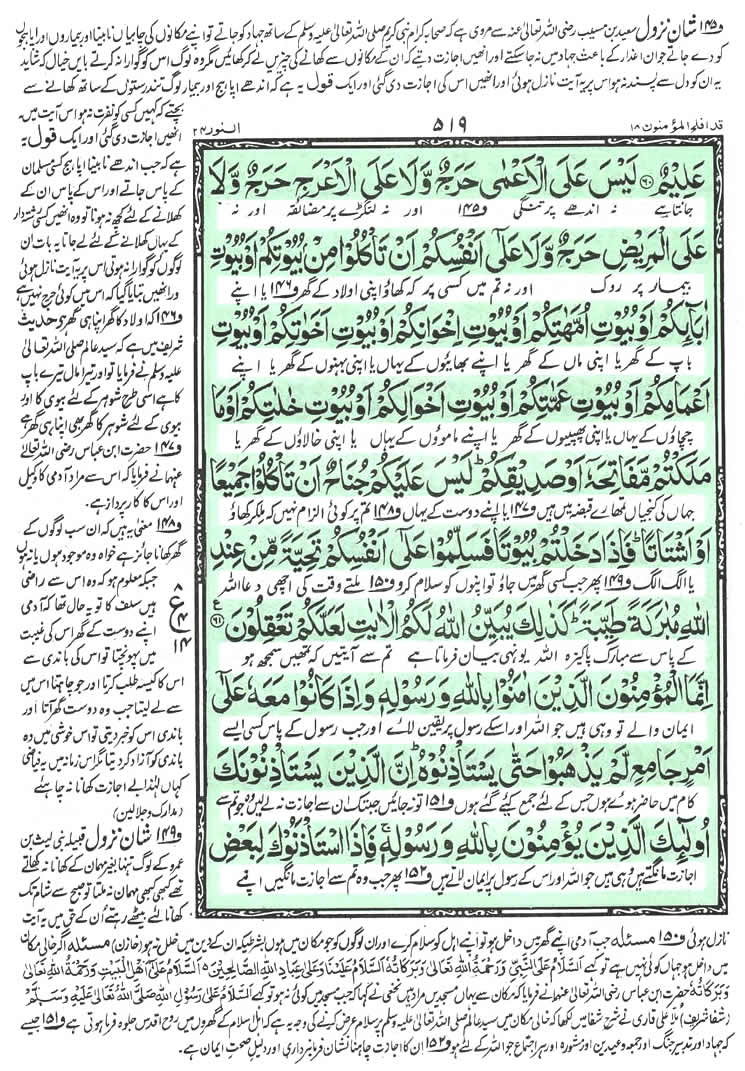 و۱۴۵ شان نزول سعید بن مسیب رضی اللہ تعالیٰ عنہ سے مروی ہے کہ صحابہ کرام نبی کریم صلی اللہ تعالیٰ علیہ وسلم کے ساتھ جہاد کو جاتے تو اپنے مکانوں کی چابیاں نابینا اور بیماروں اور اپاہجوں
کو دے جاتے جو ان اعذار کے باعث جہاد میں نہ جا سکتے اور انھیں اجازت دیتے کہ ان کے مکانوں سے کھانے کی چیزیں لے کر کھائیں مگر وہ لوگ اس کو گوارا نہ کرتے بایں خیال کہ شاید
یہ ان کو دل سے پسند نہ ہو اس پر یہ آیت نازل ہوئی اور انھیں اس کی اجازت دی گئی اور ایک قول یہ ہے کہ اندھے اپاہج اور بیمار لوگ تندرستوں کے ساتھ کھانے سے
قد افلح المؤمنون ۱۸
۵۱۹
النور ۲۴
عَلِيْمٌ ﴿۶۰﴾ لَيْسَ عَلَى الْاَعْمٰى حَرَجٌ وَّلَا عَلَى الْاَعْرَجِ حَرَجٌ وَّلَا
جانتا ہے نہ اندھے پر تنگی و۱۴۵ اور نہ لنگڑے پر مضائقہ اور نہ
عَلَى الْمَرِيْضِ حَرَجٌ وَّلَا عَلٰٓى اَنْفُسِكُمْ اَنْ تَاْكُلُوْا مِنْۢ بُيُوْتِكُمْ اَوْ بُيُوْتِ
بیمار پر روک اور نہ تم میں کسی پر کہ کھاؤ اپنی اولاد کے گھر و۱۴۶ یا اپنے
اٰبَآئِكُمْ اَوْ بُيُوْتِ اُمَّهٰتِكُمْ اَوْ بُيُوْتِ اِخْوَانِكُمْ اَوْ بُيُوْتِ اَخَوٰتِكُمْ اَوْ بُيُوْتِ
باپ کے گھر یا اپنی ماں کے گھر یا اپنے بھائیوں کے یہاں یا اپنی بہنوں کے گھر یا اپنے
اَعْمَامِكُمْ اَوْ بُيُوْتِ عَمّٰتِكُمْ اَوْ بُيُوْتِ اَخْوَالِكُمْ اَوْ بُيُوْتِ خٰلٰتِكُمْ اَوْ مَا
چچاؤں کے یہاں یا اپنی پھپیوں کے گھر یا اپنے ماموؤں کے یہاں یا اپنی خالاؤں کے گھر یا
مَلَكْتُمْ مَّفَاتِحَهٗٓ اَوْ صَدِيْقِكُمْ ؕ لَيْسَ عَلَيْكُمْ جُنَاحٌ اَنْ تَاْكُلُوْا جَمِيْعًا
جہاں کی کنجیاں تمہارے قبضہ میں ہیں و۱۴۷ یا اپنے دوست کے یہاں و۱۴۸ تم پر کوئی الزام نہیں کہ مل کر کھاؤ
اَوْ اَشْتَاتًا ؕ فَاِذَا دَخَلْتُمْ بُيُوْتًا فَسَلِّمُوْا عَلٰٓى اَنْفُسِكُمْ تَحِيَّةً مِّنْ عِنْدِ
یا الگ الگ و۱۴۹ پھر جب کسی گھر میں جاؤ تو اپنوں کو سلام کرو و۱۵۰ ملتے وقت کی اچھی دعا اللہ
اللّٰهِ مُبٰرَكَةً طَيِّبَةً ؕ كَذٰلِكَ يُبَيِّنُ اللّٰهُ لَكُمُ الْاٰيٰتِ لَعَلَّكُمْ تَعْقِلُوْنَ ﴿۶۱﴾ ع
کے پاس سے مبارک پاکیزہ اللہ یونہی بیان فرماتا ہے تم سے آیتیں کہ تمھیں سمجھ ہو
اِنَّمَا الْمُؤْمِنُوْنَ الَّذِيْنَ اٰمَنُوْا بِاللّٰهِ وَرَسُوْلِهٖ وَاِذَا كَانُوْا مَعَهٗ عَلٰٓى
ایمان والے تو وہی ہیں جو اللہ اور اسکے رسول پر یقین لائے اور جب رسول کے پاس کسی ایسے
اَمْرٍ جَامِعٍ لَّمْ يَذْهَبُوْا حَتّٰى يَسْتَاْذِنُوْهُ ؕ اِنَّ الَّذِيْنَ يَسْتَاْذِنُوْنَكَ
کام میں حاضر ہوئے ہوں جس کے لئے جمع کیے گئے ہوں و۱۵۱ تو نہ جائیں جب تک ان سے اجازت نہ لے لیں وہ جو تم سے
اُولٰٓئِكَ الَّذِيْنَ يُؤْمِنُوْنَ بِاللّٰهِ وَرَسُوْلِهٖ ۚ فَاِذَا اسْتَاْذَنُوْكَ لِبَعْضِ
اجازت مانگتے ہیں وہی ہیں جو اللہ اور اس کے رسول پر ایمان لاتے ہیں و۱۵۲ پھر جب وہ تم سے اجازت مانگیں اپنے
بچتے کہ کہیں کسی کو نفرت نہ ہو اس آیت میں
انھیں اجازت دی گئی اور ایک قول یہ
ہے کہ جب اندھے نابینا اپاہج کسی مسلمان
کے پاس جاتے اور اس کے پاس ان کے
کھلانے کے لئے کچھ نہ ہوتا تو وہ انھیں کسی رشتہ دار
کے یہاں کھلانے کے لئے لے جاتا یہ بات ان
لوگوں کو گوارا نہ ہوتی اس پر یہ آیت نازل ہوئی
اور انھیں بتایا گیا کہ اس میں کوئی حرج نہیں ہے
و۱۴۶ کہ اولاد کا گھر اپنا ہی گھر ہے حدیث
شریف میں ہے کہ سید عالم صلی اللہ تعالیٰ
علیہ وسلم نے فرمایا تو اور تیرا مال تیرے باپ
کا ہے اسی طرح شوہر کے لئے بیوی کا اور
بیوی کے لئے شوہر کا گھر بھی اپنا ہی گھر ہے
و۱۴۷ حضرت ابن عباس رضی اللہ تعالیٰ
عنہما نے فرمایا کہ اس سے مراد آدمی کا وکیل
اور اس کا کار پرداز ہے
و۱۴۸ معنی یہ ہیں کہ ان سب لوگوں کے
گھر کھانا جائز ہے خواہ وہ موجود ہوں یا نہ ہوں
جبکہ معلوم ہو کہ وہ اس سے راضی
ہیں سلف کا تو یہ حال تھا کہ آدمی
اپنے دوست کے گھر اس کی غیبت
میں پہونچتا تو اس کی باندی سے
اس کا کیسہ طلب کرتا اور جو چاہتا اس میں
سے لے لیتا جب وہ دوست گھر آتا اور
باندی اس کو خبر دیتی تو اس خوشی میں وہ
باندی کو آزاد کر دیتا مگر اس زمانہ میں یہ فیاضی
کہاں لہٰذا بے اجازت کھانا نہ چاہئے
(مدارک وجلالین)
و۱۴۹ شان نزول قبیلہ بنی لیث بن
عمرو کے لوگ تنہا بغیر مہمان کے کھانا نہ کھاتے
تھے کبھی کبھی مہمان نہ ملتا تو صبح سے شام تک
کھانا لئے بیٹھے رہتے اُن کے حق میں یہ آیت
ع
۸
۴
۱۴
نازل ہوئی و۱۵۰ مسئلہ جب آدمی اپنے گھر میں داخل ہو تو اپنے اہل کو سلام کرے اور ان لوگوں کو جو مکان میں ہوں بشرطیکہ ان کے دین میں خلل نہ ہو (خازن) مسئلہ اگر خالی مکان
میں داخل ہو جہاں کوئی نہیں ہے تو کہے اَلسَّلَامُ عَلَی النَّبِیِّ وَرَحْمَۃُ اللّٰہِ تَعَالٰی وَبَرَکَاتُہٗ اَلسَّلَامُ عَلَیْنَا وَعَلٰی عِبَادِ اللّٰہِ الصَّالِحِیْنَ اَلسَّلَامُ عَلٰی اَھْلِ الْبَیْتِ وَرَحْمَۃُ اللّٰہِ تَعَالٰی
وَبَرَکَاتُہٗ حضرت ابن عباس رضی اللہ تعالیٰ عنہما نے فرمایا کہ مکان سے یہاں مسجدیں مراد ہیں نخعی نے کہا کہ جب مسجد میں کوئی نہ ہو تو کہے اَلسَّلَامُ عَلٰی رَسُوْلِ اللّٰہِ صَلَّی اللّٰہُ تَعَالٰی عَلَیْہِ وَسَلَّمَ
(شفا شریف) ملا علی قاری نے شرح شفا میں لکھا کہ خالی مکان میں سید عالم صلی اللہ تعالیٰ علیہ وسلم پر سلام عرض کرنے کی وجہ یہ ہے کہ اہل اسلام کے گھروں میں روح اقدس جلوہ فرما ہوتی ہے و۱۵۱ جیسے
کہ جہاد اور تدبیر جنگ اور جمعہ وعیدین اور مشورہ اور ہر اجتماع جو اللہ کے لئے ہو و۱۵۲ ان کا اجازت چاہنا نشان فرمانبرداری اور دلیل صحت ایمان ہے۔